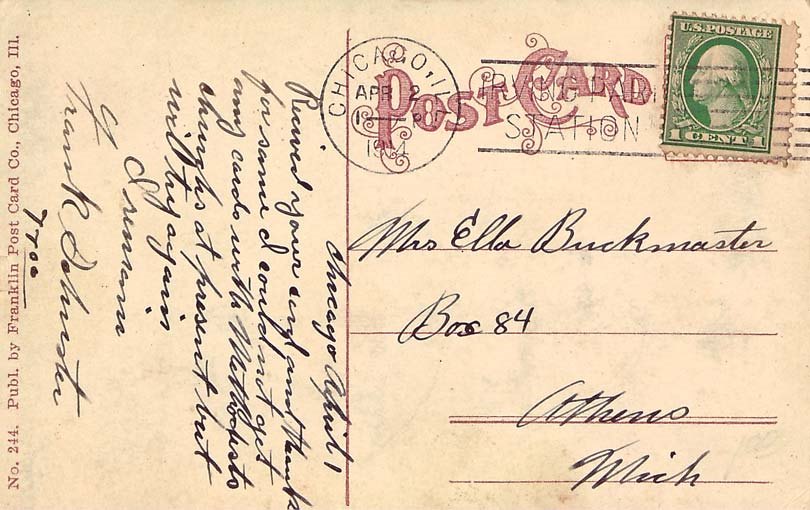 POST CARD
U.S. POSTAGE
1 CENT 1
CHICAGO, ILL.
APR 2
1914
IRVING PARK
STATION
Mrs Ella Buckmaster
Box 84
Athens
Mich
Chicago April 1
Recived your card and thank
for same I could not get
any cards with Methodists
churghs at present but
will try again
I remain
Frank
7700
No. 244. Publ. by Franklin Post Card Co., Chicago, Ill.